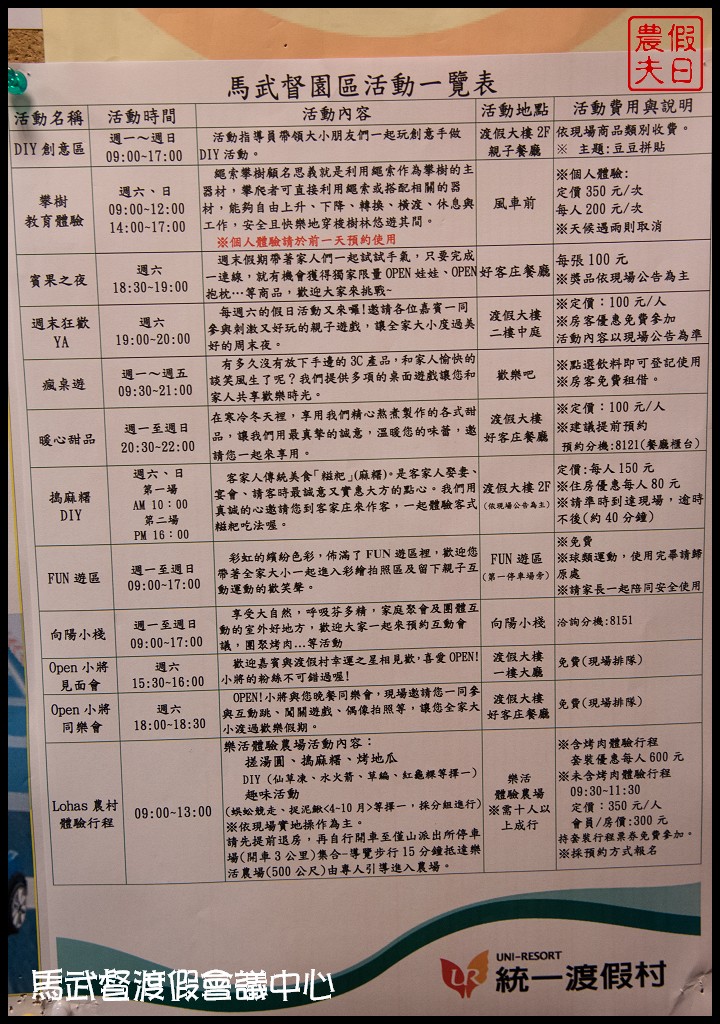 假日
農夫
馬武督園區活動一覽表
活動名稱 活動時間 活動內容 活動地點 活動費用與說明
DIY創意區
週一～週日
09:00~17:00
活動指導員帶領大小朋友們一起玩創意手做
DIY活動。
渡假大樓2F
親子餐廳
依現場商品類別收費。
※ 主題:豆豆拼貼
攀樹
教育體驗
週六、日
09:00~12:00
14:00~17:00
繩索攀樹顧名思義就是利用繩索作為攀樹的主
器材，攀爬者可直接利用繩索或搭配相關的器
材，能夠自由上升、下降、轉換、橫渡、休息與
工作，安全且快樂地穿梭樹林悠遊其間。
※個人體驗請於前一天預約使用
風車前
※個人體驗:
定價350元/次
每人200元/次
※天候遇雨則取消
賓果之夜
週六
18:30~19:00
週末假期帶著家人們一起試試手氣，只要完成
一連線，就有機會獲得獨家限量OPEN娃娃、OPEN
抱枕…等商品，歡迎大家來挑戰~
好客庄餐廳
每張100元
※獎品依現場公告為主
週末狂歡
YA
週六
19:00~20:00
每週六的假日活動又來囉!邀請各位嘉賓一同
參與刺激又好玩的親子遊戲，讓全家大小度過美
好的周末夜。
渡假大樓
二樓中庭
※定價：100元/人
※房客優惠免費參加
活動內容以現場公告為準
瘋桌遊
週一～週五
09:30~21:00
有多久沒有放下手邊的3C產品，和家人愉快的
談笑風生了呢？我們提供多項的桌面遊戲讓您和
家人共享歡樂時光。
歡樂吧
※點選飲料即可登記使用
※房客免費租借。
暖心甜品
週一至週日
20:30~22:00
在寒冷冬天裡，享用我們精心熬煮製作的各式甜
品，讓我們用最真摯的誠意，溫暖您的味蕾，邀
請您一起來享用。
渡假大樓
好客庄餐廳
※定價：100元/人
※建議提前預約
預約分機:8121(餐廳櫃台)
搗麻糬
DIY
週六、日
第一場
AM 10：00
第二場
PM 16：00
客家人傳統美食「糍粑」(麻糬)。是客家人娶妻、
宴會、請客時最誠意又實惠大方的點心。我們用
真誠的心邀請您到客家庄來作客，一起體驗客式
糍粑吃法喔。
渡假大樓2F
(依現場公告為主)
定價:每人150元
※住房優惠每人80元
※請準時到達現場，逾時
不後(約40分鐘)
FUN遊區
週一至週日
09:00~17:00
彩虹的繽紛色彩，佈滿了FUN遊區裡，歡迎您
帶著全家大小一起進入彩繪拍照區及留下親子互
動運動的歡笑聲。
FUN遊區
(第一停車場旁)
※免費
※球類運動，使用完畢請歸
原處
※請家長一起陪同安全使用
向陽小棧
週一至週日
09:00~17:00
享受大自然，呼吸芬多精，家庭聚會及團體互
動的室外好地方，歡迎大家一起來預約互動會
議，團聚烤肉...等活動
向陽小棧
洽詢分機:8151
Open小將
見面會
週六
15:30~16:00
歡迎嘉賓與渡假村幸運之星相見歡，喜愛OPEN!
小將的粉絲不可錯過喔!
渡假大樓
一樓大廳
免費(現場排隊)
Open小將
同樂會
週六
18:00~18:30
OPEN!小將與您晚餐同樂會，現場邀請您一同參
與互動跳、闖關遊戲、偶像拍照等，讓您全家大
小渡過歡樂假期。
渡假大樓
好客庄餐廳
免費(現場排隊)
Lohas農村
體驗行程
09:00~13:00
樂活體驗農場活動內容：
搓湯圓、搗麻糬、烤地瓜
DIY(仙草凍、水火箭、草編、紅龜粿等擇一)
趣味活動
(蜈蚣競走、捉泥鰍<4~10月>等擇一，採分組進行)
※依現場實地操作為主。
請先提前退房，再自行開車至僅山派出所停車
場(開車3公里)集合-導覽步行15分鐘抵達樂
活農場(500公尺)由專人引導進入農場。
樂活
體驗農場
※需十人以
上成行
※含烤肉體驗行程
套裝優惠每人600元
※未含烤肉體驗行程
09:30~11:30
定價：350元/人
會員/房價:300元
持套裝行程票券免費參加。
※採預約方式報名
UNI-RESORT
統一渡假村
馬武督渡假會議中心